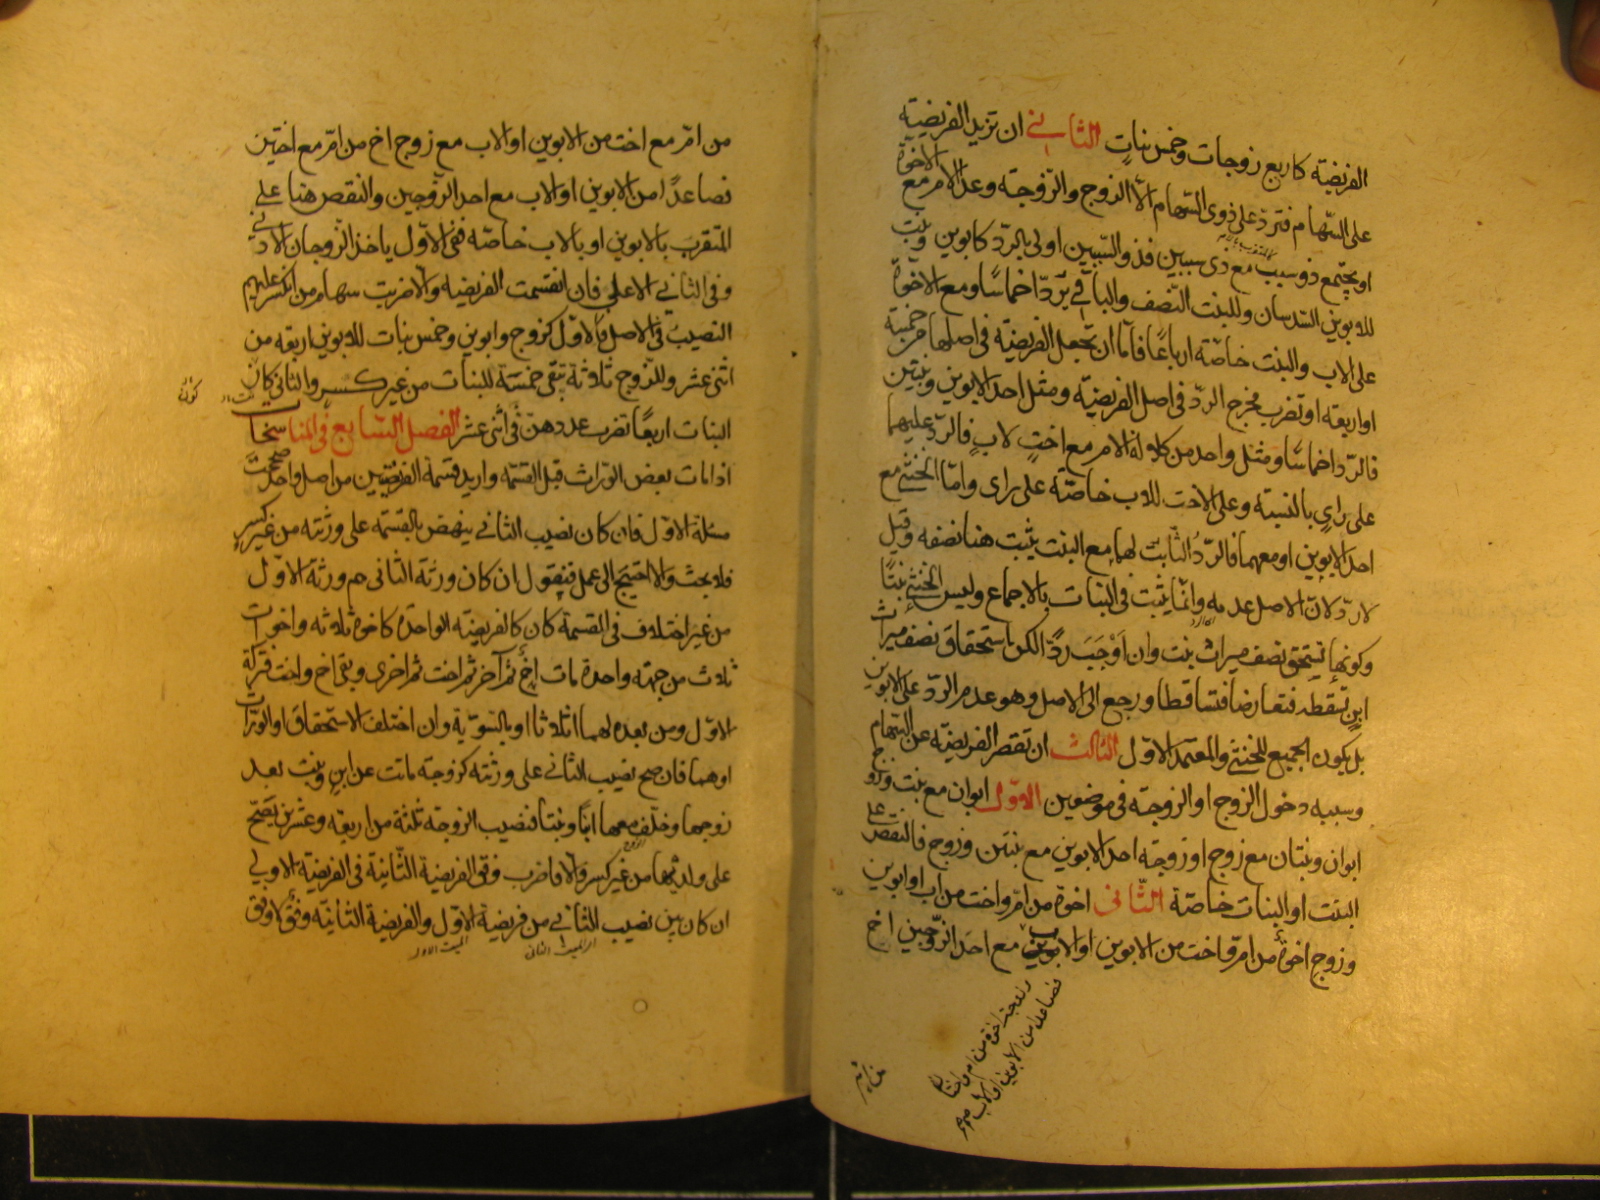 الفريضة كاربع زوجات وخمس بنات الثاني ان تزيد الفريضة
على السهام فترد على ذوى السهام الا الزوج والزوجة وعد الام مع الاخوة
او يجتمع ذو سبب مع ذى سببين فذو السببين اولى بالرد كابوين وبنت
للابوين السدسان وللبنت النصف والباقي يرد اخماسا ومع الاخوة
على الاب والبنت خاصة ارباعا فاما ان تجعل الفريضة فى اصلها من خمسة
او اربعة او تضرب مخرج الرد فى اصل الفريضة ومثل احد الابوين وبنتين
فالرد اخماسا ومثل واحد من كلالة الام مع اخت لاب فالرد عليهما
على راي بالنسبة وعلى الاخت للاب خاصة على راى واما الخنثى مع
احد الابوين او معهما فالرد الثابت لهما مع البنت يثبت هنا نصفه وقيل
لا رد لان الاصل عدمه وانما يثبت فى البنات بالاجماع وليس الخنثى بنتا
وكونها تستحق نصف ميراث بنت وان اوجب ردا لكن استحقاق نصف ميراث
ابن تسقطه فتعارضا فتساقطا ورجع الى الاصل وهو عدم الرد على الابوين
بل يكون الجميع للخنثى والمعتمد الاول الثالث ان تقصر الفريضة عن السهام
وسببه دخول الزوج او الزوجة فى موضعين الاول ابوان مع بنت وزوج
ابوان وبنتان مع زوج او زوجة احد الابوين مع بنتين وزوج فالنقص على
البنت او البنات خاصة الثانى اخوة من ام واخت من اب او ابوين
وزوج اخوة من ام واخت من الابوين او الابوين مع احد الزوجين اخ
من ام مع اخت من الابوين او الاب مع زوج اخ من ام مع اختين
فصاعدا من الابوين او الاب مع احد الزوجين والنقص هنا على
المتقرب بالابوين او بالاب خاصة ففى الاول ياخذ الزوجان الادنى
وفى الثاني الاعلى فان انقسمت الفريضة والا ضربت سهام من انكسر عليهم
النصيب فى الاصل فالاول كزوج وابوين وخمس بنات للابوين اربعة من
اثنى عشر وللزوج ثلاثة تبقى خمسة للبنات من غير كسر والثانى كان
البنات اربعا تضرب عددهن فى اثنى عشر الفصل السابع فى المناسخات
اذا مات بعض الوراث قبل القسمة واريد قسمة الفريضتين من اصل واحد صححت
مسئلة الاول فان كان نصيب الثاني ينهض بالقسمة على ورثته من غير كسر
فلا بحث والا احتيج الى عمل فنقول ان كان ورثة الثانى هم ورثة الاول
من غير اختلاف فى القسمة كان كالفريضة الواحدة كاخوة ثلاثة واخوات
ثلاث من جهة واحدة مات اخ ثم آخر ثم اخت ثم اخرى وبقى اخ واخت فتركة
الاول ومن بعده لهما اثلاثا او بالسوية وان اختلف الاستحقاق او الوراث
او هما فان صح نصيب الثانى على ورثته كزوجة ماتت عن ابن وبنت بعد
زوجها وخلف معها ابنا وبنتا فنصيب الزوجة ثلثة من اربعة وعشرين تصح
على ولديها من غير كسر والا فاضرب وفق الفريضة الثانية فى الفريضة الاولى
ان كان بين نصيب الثاني من فريضة الاول والفريضة الثانية وفق لا وفق
اى الميت الثانى
الميت الاول
وزوجة اخوة من ام واختان
فصاعدا من الابوين او الاب